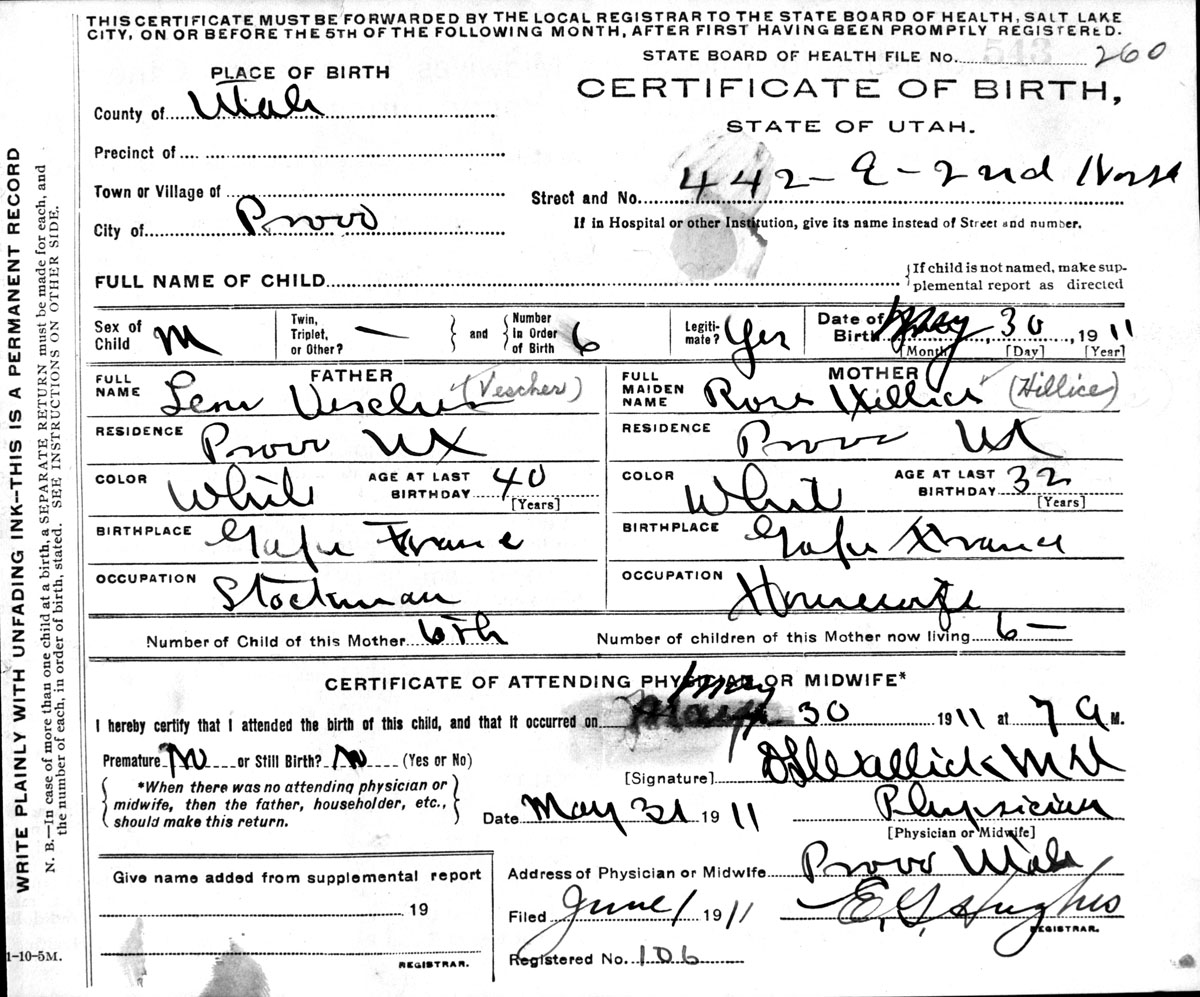 THIS CERTIFICATE MUST BE FORWARDED BY THE LOCAL REGISTRAR TO THE STATE BOARD OF HEALTH, SALT LAKE
CITY, ON OR BEFORE THE 5TH OF THE FOLLOWING MONTH, AFTER FIRST HAVING BEEN PROMPTLY REGISTERED.
STATE BOARD OF HEALTH FILE No. 543 260
PLACE OF BIRTH
CERTIFICATE OF BIRTH,
STATE OF UTAH.
County of Utah
Precinct of
Town or Village of
Street and No. 442- E - 2nd
City of Provo
If in Hospital or other Institution, give its name instead of Street and number.
FULL NAME OF CHILD
{If child is not named, make sup-
plemental report as directed
Sex of Child M
Twin, Triplet, or Other? — } and { Number In Order of Birth 6
Legiti-mate? Yes
Date of Birth May, 30, 1911
[Month] [Day] [Year]
FATHER
FULL NAME (Vescher)
MOTHER
FULL MAIDEN NAME Rose Hillice (Hillice)
RESIDENCE Provo Ut
RESIDENCE Provo Ut
COLOR White AGE AT LAST BIRTHDAY 40 [Years]
COLOR White AGE AT LAST BIRTHDAY 32 [Years]
BIRTHPLACE France
BIRTHPLACE France
OCCUPATION Stockman
OCCUPATION Housewife
Number of Child of this Mother 6th
Number of children of this Mother now living 6 —
CERTIFICATE OF ATTENDING PHYSICIAN OR MIDWIFE*
I hereby certify that I attended the birth of this child, and that it occurred on May 30 1911 at 7 A M.
Premature No or Still Birth? No (Yes or No)
[Signature] Wallick MD
{ *When there was no attending physician or
midwife, then the father, householder, etc.,
should make this return. }
Date May 31 1911
Physician
[Physician or Midwife]
Address of Physician or Midwife Provo Utah
Give name added from supplemental report
19
REGISTRAR.
Filed June 1 1911
Hughes
REGISTRAR.
Registered No. 106
1-10-5M.
WRITE PLAINLY WITH UNFADING INK—THIS IS A PERMANENT RECORD
N. B.—In case of more than one child at a birth, a SEPARATE RETURN must be made for each, and
the number of each, in order of birth, stated. SEE INSTRUCTIONS ON OTHER SIDE.